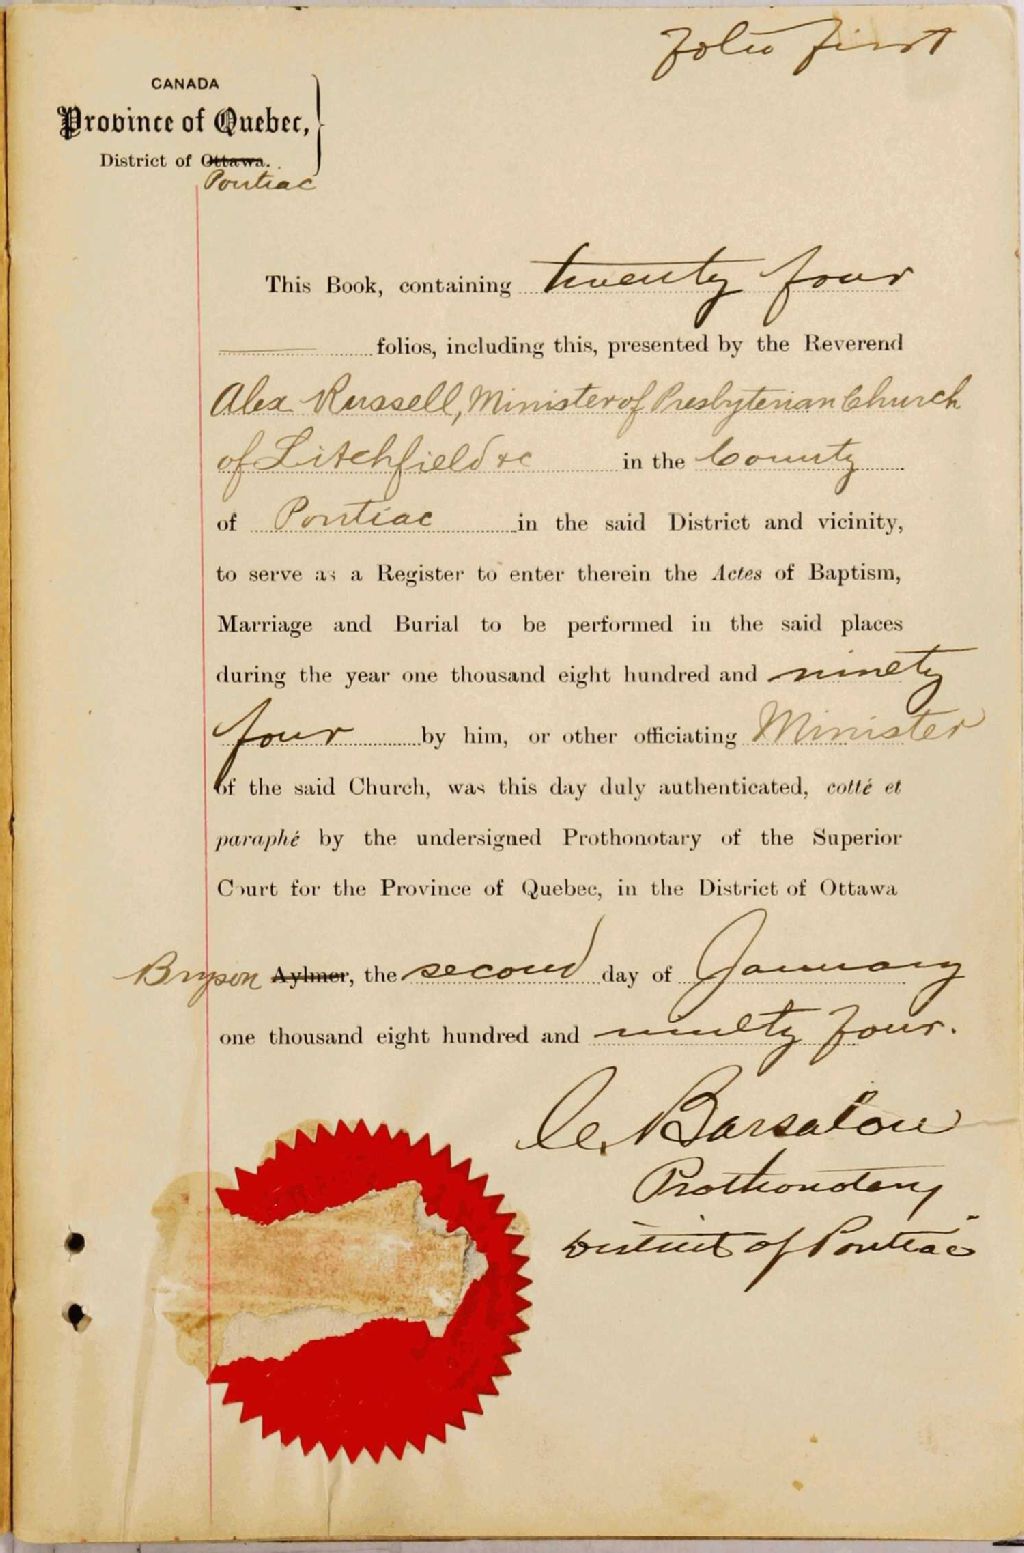 folio first
CANADA
Province of Quebec,
District of Ottawa.
Pontiac
This Book, containing twenty four
folios, including this, presented by the Reverend
Alex Russell, Minister of Presbyterian Church
of Litchfield &c in the County
of Pontiac in the said District and vicinity,
to serve as a Register to enter therein the Actes of Baptism,
Marriage and Burial to be performed in the said places
during the year one thousand eight hundred and ninety
four by him, or other officiating Minister
of the said Church, was this day duly authenticated, cotté et
paraphé by the undersigned Prothonotary of the Superior
Court for the Province of Quebec, in the District of Ottawa
Bryson Aylmer, the second day of January
one thousand eight hundred and ninety four.
Barsalou
Prothonotary
District of Pontiac